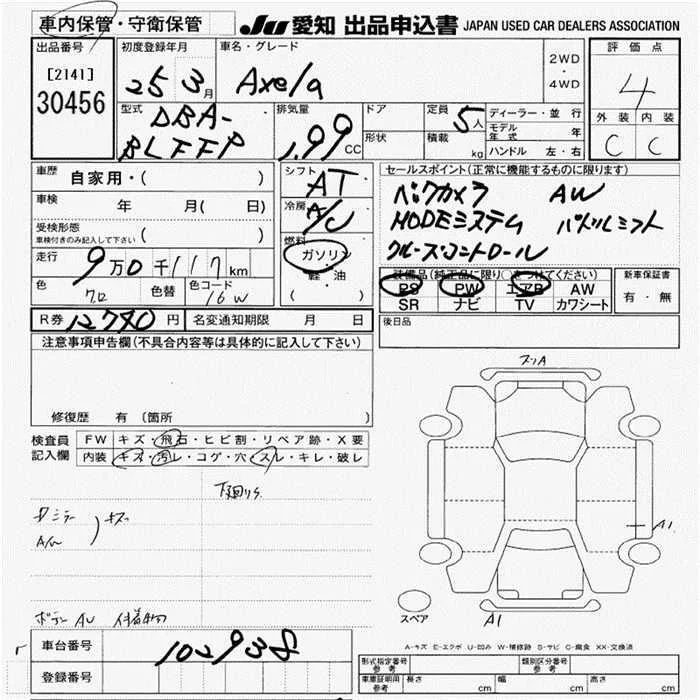 車内保管・守衛保管 JU 愛知 出品申込書 JAPAN USED CAR DEALERS ASSOCIATION
出品番号 初度登録年月 車名・グレード 2WD ・ 4WD 評価点
[2141] 25 3月 Axela 4
30456
型式 排気量 ドア 定員 5人 ディーラー・並行 外装 内装
DBA- 1.99 CC 形状 積載 kg モデル年式 年 C C
BLFFP ハンドル 左・右
車歴 自家用・( ) シフト AT セールスポイント(正常に機能するものに限ります)
車検 年 月( 日) 冷房 A/C バックカメラ AW
受検形態 車検付きのみ記入して下さい ( ) MODEシステム パドルシフト
燃料 ガソリン・軽・油 クルーズコントロール
走行 9万0千117km
装備品(純正品に限り○をつけてください) 新車保証書
色 色替 色コード 16W PS PW エアB AW 有・無
SR ナビ TV カワシート
R券 12740円 名変通知期限 月 日 後日品
注意事項申告欄(不具合内容等は具体的に記入して下さい)
修復歴 有 (箇所 )
検査員記入欄 FW キズ・飛石・ヒビ割・リペア跡・X要
内装 キズ・汚レ・コゲ・穴・スレ・キレ・破レ
下廻りS
ミラー キズ
A/W
A1
A1
スペア
A-キズ E-エクボ U-凹み W-補修跡 S-サビ C-腐食 XX-交換済
車台番号 102938
登録番号
形式指定番号 参考 類別区分番号 参考
車庫証明用 参考 長さ cm 幅 cm 高さ cm